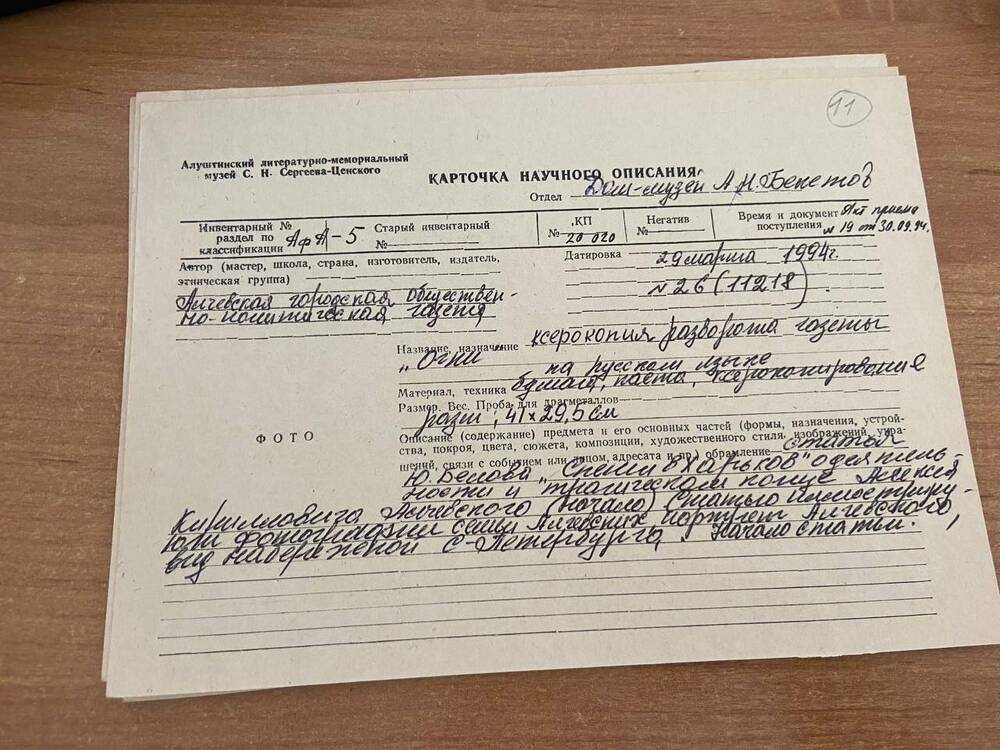 11
Алуштинский литературно-мемориальный
музей С. Н. Сергеева-Ценского
КАРТОЧКА НАУЧНОГО ОПИСАНИЯ
Отдел Дом-музей А.Н. Бекетов
Инвентарный №
раздел по
классификации АфА-5
Старый инвентарный
№
КП
№ 20 020
Негатив
№
Время и документ Акт приема
поступления № 19 от 30.09.94.
Автор (мастер, школа, страна, изготовитель, издатель,
этническая группа)
Алчевская городская обществен-
но-политическая газета
Датировка 29 марта 1994г.
№ 26 (11218)
Название, назначение ксерокопия разворота газеты
„Огни" на русском языке
Материал, техника бумага, паста, ксерокопирование
Размер. Вес. Проба для драгметаллов
разм; 41 х 29,5 см
ФОТО
Описание (содержание) предмета и его основных частей (формы, назначения, устрой-
ства, покроя, цвета, сюжета, композиции, художественного стиля, изображений, укра-
шений, связи с событием или лицом, адресата и пр.) обрамление статья
Ю. Белова „Спеши в Харьков" о деятель-
ности и трагическом конце Алексея
Кирилловича Алчевского (начало) Статью иллюстриру-
юли фотографии семьи Алчевских портрет Алчевского,
вид набережной С-Петербурга, Начало статьи.